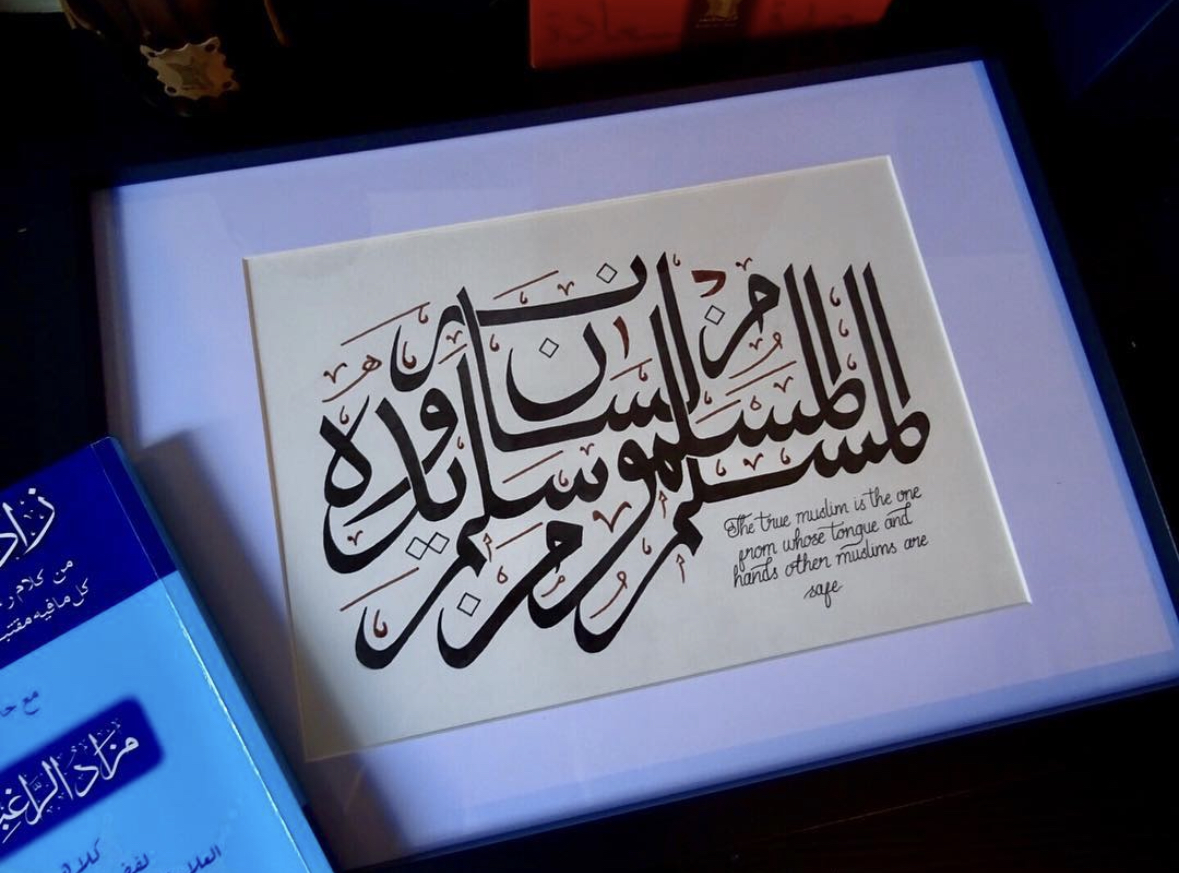 المسلم من سلم المسلمون من لسانه ويده
The true muslim is the one
from whose tongue and
hands other muslims are
safe
زاد
من كلام
كل ما فيه
مع
مزاد